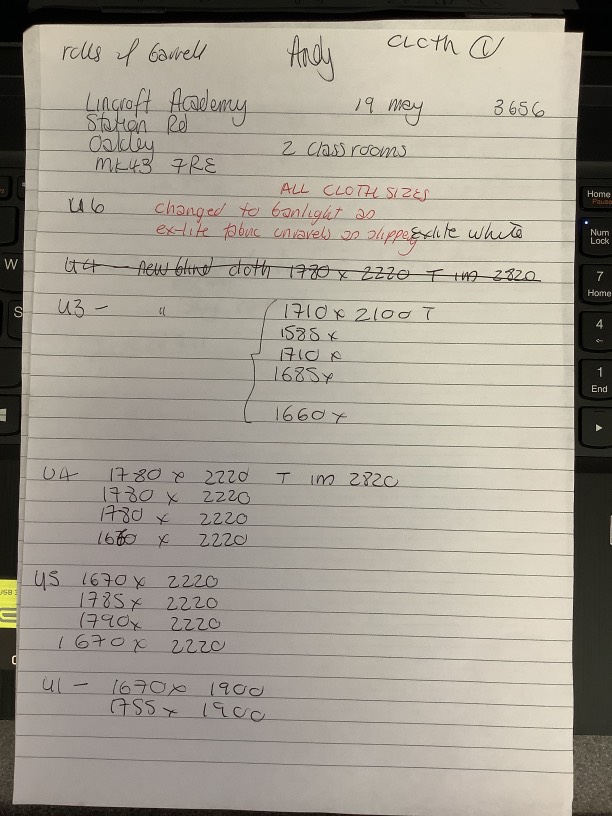 rolls of Andy CLOTH 1
Lincroft Academy 19 may 3656
Station Rd
Oakley 2 classrooms
MK43 7RE
ALL CLOTH SIZES
U6 changed to banlight as
ex-lite fabric unravels so slippery Exlite white
U4 - new blind cloth 1780 x 2220 T im 2820
U3 - " 1710 x 2100 T
1585 x
1710 x
1685 x
1660 x
U4 1780 x 2220 T im 2820
1780 x 2220
1780 x 2220
1660 x 2220
U5 1670 x 2220
1785 x 2220
1790 x 2220
1670 x 2220
U1 - 1670 x 1900
1755 x 1900
Home
Pause
Num
Lock
7
Home
4
←
1
End
W
S